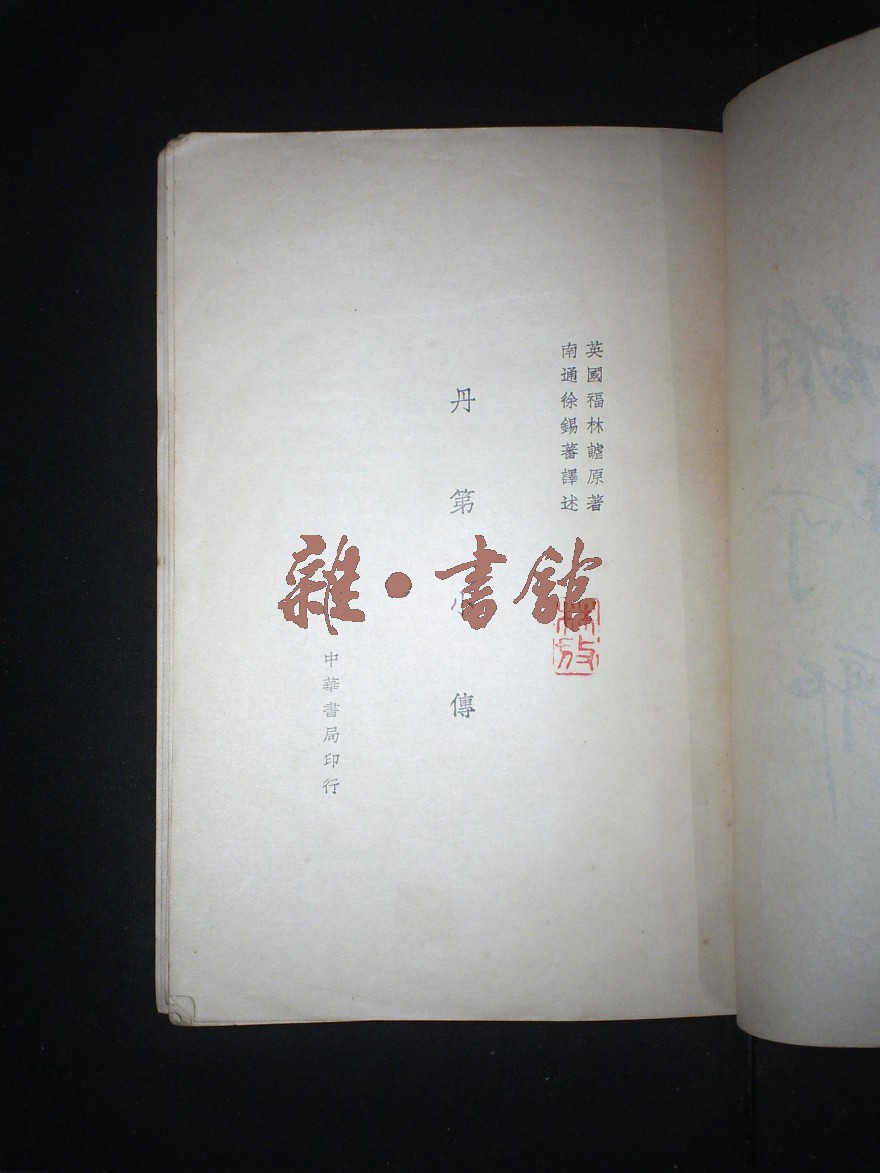 英國福林謔原著
南通徐錫蕃譯述
丹第小傳
中華書局印行
雜·書館